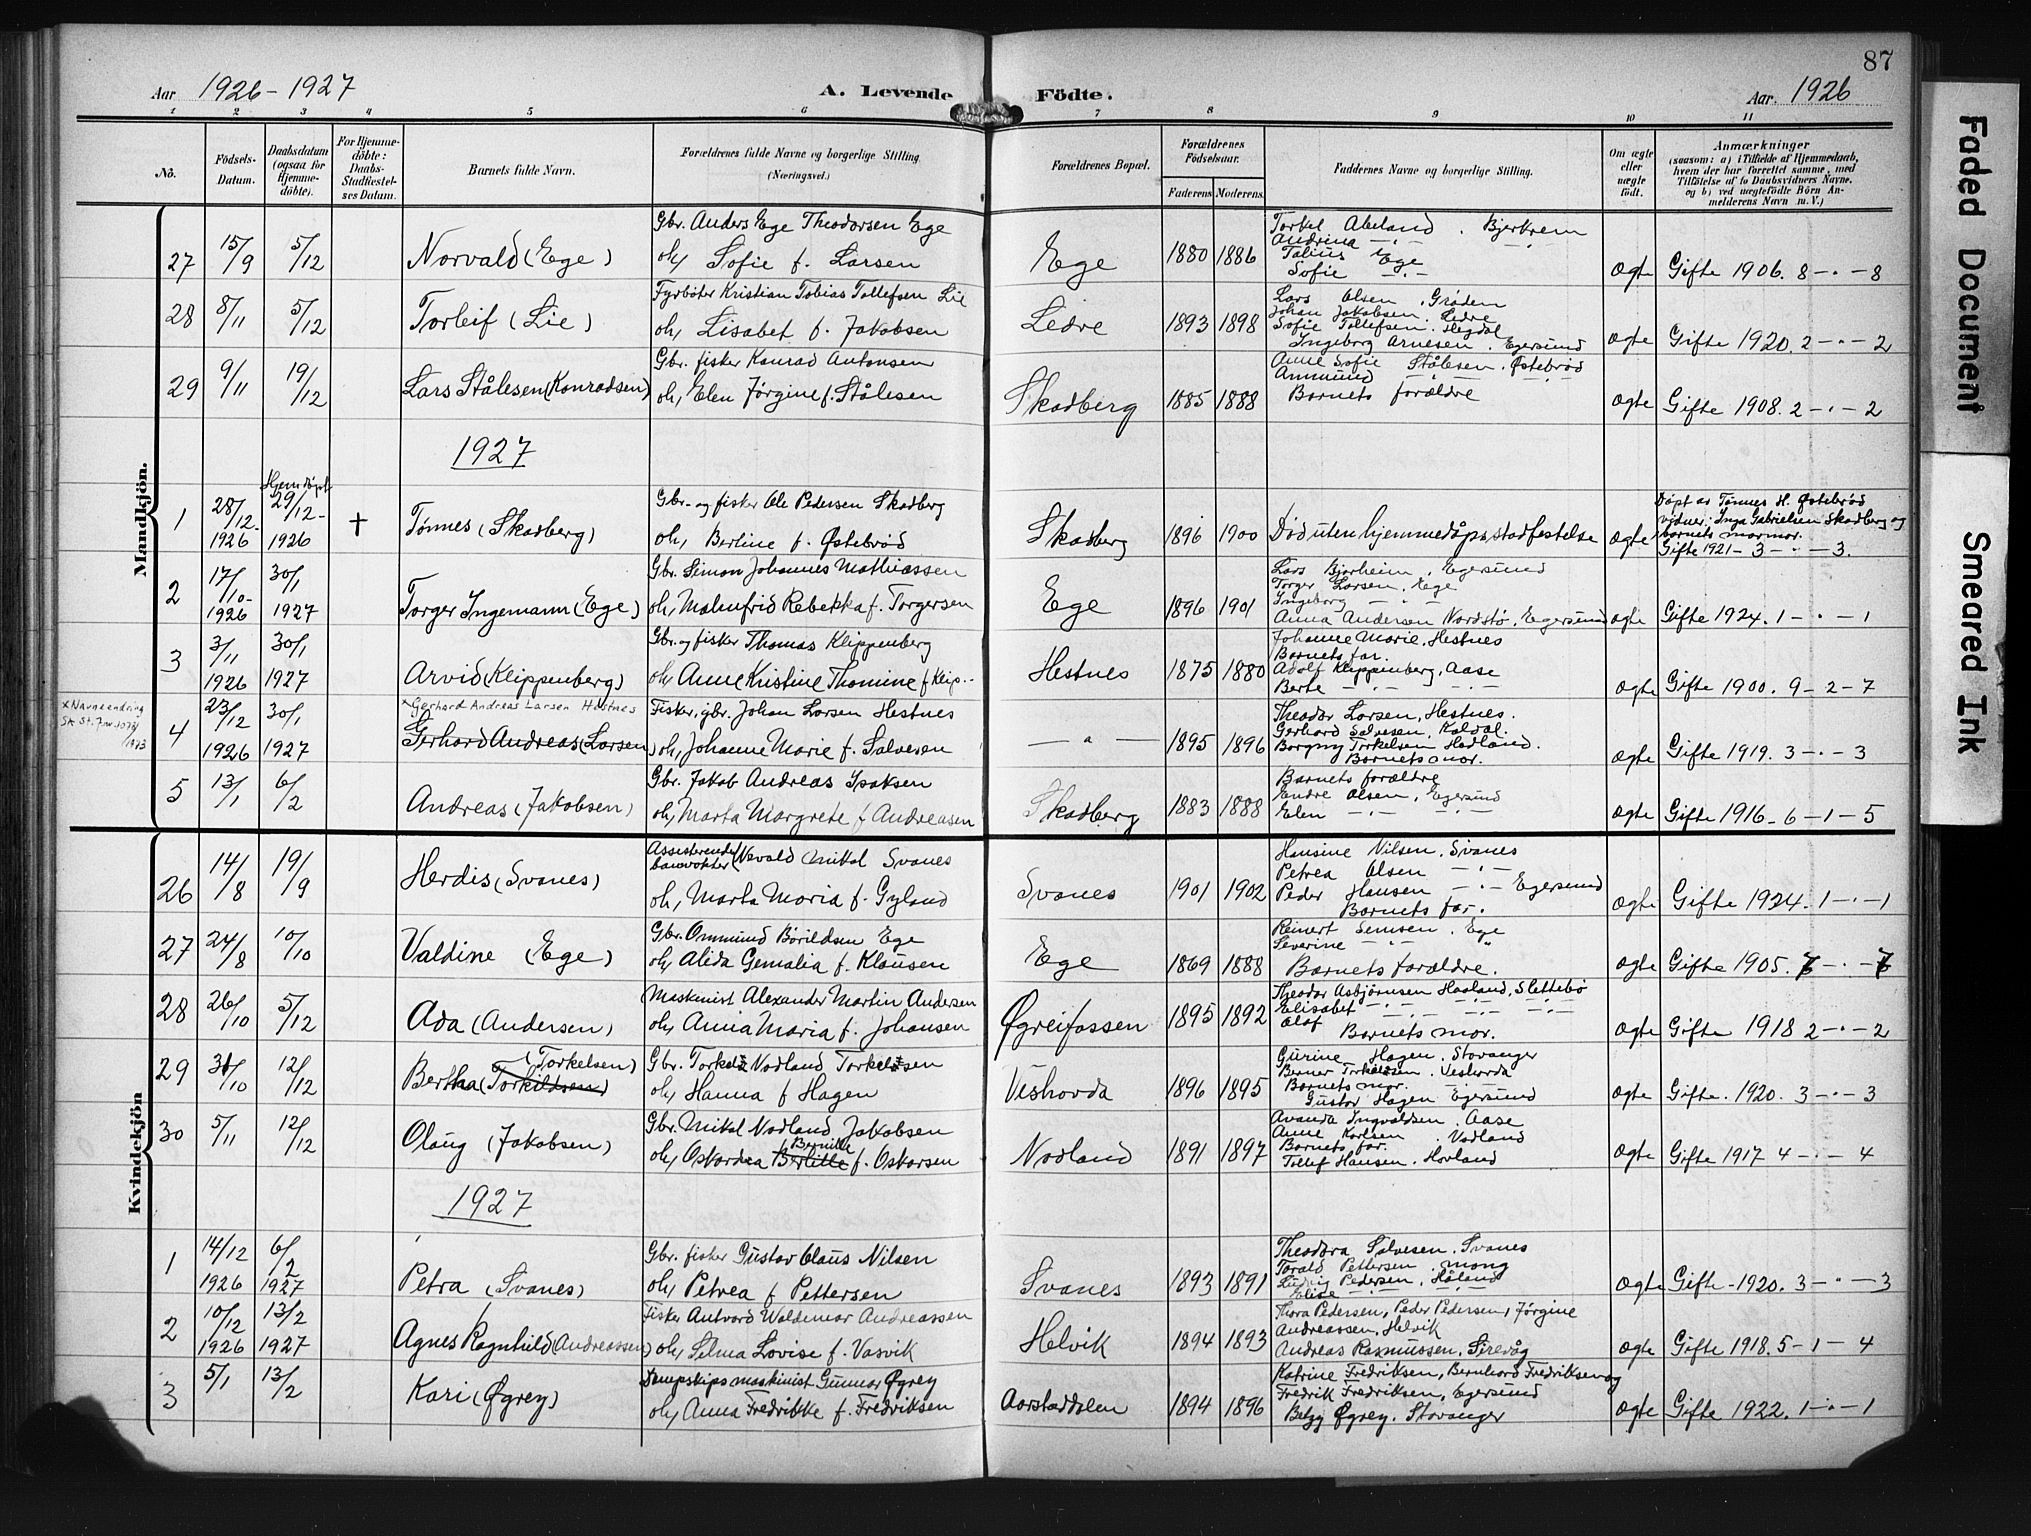 87
Aar 1926-1927 A. Levende Födte. Aar. 1926
1 2 3 4 5 6 7 8 9 10 11
No. Födsels-Datum. Daabsdatum (ogsaa for Hjemmedöbte). For Hjemmedöbte: Daabs-Stadfestelses Datum. Barnets fulde Navn. Forældrenes fulde Navne og borgerlige Stilling. (Næringsvei.) Forældrenes Bopæl. Forældrenes Födselsaar. Faderens Moderens Faddernes Navne og borgerlige Stilling. Om ægte eller uægte födt. Anmærkninger (saasom: a) i Tilfælde af Hjemmedaab, hvem der har forrettet samme, med Tilföielse af to Daabsvidners Navne, og b) ved uægtefödte Börn Anmelderens Navn m. V.)
Mandkjön.
27 15/9 5/12 Norvald (Ege) Gbr. Anders Ege Theodorsen Ege
oh, Sofie f. Larsen Ege 1880 1886 Torkel Abeland . Bjerkrem
Andrina -"- -"-
Tolius Ege
Sofie -"- ægte Gifte 1906. 8 -"- 8
28 8/11 5/12 Torleif (Lie) Fyrbøter Kristian Tobias Tollefsen Lie
oh, Lisabet f. Jakobsen Ledre 1893 1898 Lars Olsen . Grøden
Johan Jakobsen. Ledre
Sofie Tollefsen. Hegdal
Ingeborg Arnesen . Egersund ægte Gifte 1920. 2 -"- 2
29 9/11 19/12 Lars Stålesen (Konradsen) Gbr. fisker Konrad Antonsen
oh, Elen Jørgine f. Stålesen Skadberg 1885 1888 Anne Sofie Stålesen . Østebrød
Ammund -"- -"-
Barnets forældre ægte Gifte 1908. 2 -"- 2
1927
1 28/12 1926 Hjemdøpt 29/12 1926 † Tønnes (Skadberg) Gbr. og fisker Ole Pedersen Skadberg
oh, Berline f. Østebrød Skadberg 1896 1900 Død uten hjemmedåpsstadfestelse ægte Døpt av Tønnes H. Østebrød
vidner: Inga Gabrielsen Skadberg og
barnets mormor.
Gifte 1921 - 3 -"- 3.
2 17/10 1926 30/1 1927 Torger Ingemann (Ege) Gbr. Simon Johannes Mathiassen
oh, Malmfrid Rebekka f. Torgersen Ege 1896 1901 Lars Bjorheim, Egersund
Torger Larsen, Ege
Ingeborg -"-
Anna Andersen Nordstø, Egersund ægte Gifte 1924. 1 -"- 1
3 3/11 1926 30/1 1927 Arvid (Klippenberg) Gbr. og fisker Thomas Klippenberg
oh, Anne Kristine Thomine f Klip.. Hestnes 1875 1880 Johanne Marie. Hestnes
Barnets far
Adolf Klippenberg, Aase
Berte -"- -"- ægte Gifte 1900. 9 - 2 - 7
x Navneendring
4 23/12 1926 30/1 1927 x Gerhard Andreas Larsen Hestnes
Gerhard Andreas (Larsen) Fisker, gbr. Johan Larsen Hestnes
oh, Johanne Marie f. Salvesen -"- 1895 1896 Theodor Larsen, Hestnes.
Gerhard Salvesen, Koldal.
Borgny Torkelsen Hadland.
Barnets mor. ægte Gifte 1919. 3 -"- 3
5 13/1 6/2 Andreas (Jakobsen) Gbr. Jakob Andreas Isaksen
oh, Marta Margrete f Andreasen Skadberg 1883 1888 Barnets forældre
Endre Olsen, Egersund
Elen -"- -"- ægte Gifte 1916. 6 - 1 - 5
Kvindekjön
26 14/8 19/9 Herdis (Svanes) Assisterende banevokter (Nevald Mikal Svanes
oh, Marta Maria f. Gyland Svanes 1901 1902 Hansine Nilsen. Svanes
Petrea Olsen -"-
Peder Hansen -"- Egersund
Barnets far. ægte Gifte 1924. 1 -"- 1
27 24/8 10/10 Valdine (Ege) Gbr. Ommund Bårildsen Ege
oh, Alida Gemalia f. Klausen Ege 1869 1888 Reinert Semsen . Ege
Severine -"- "
Barnets forældre. ægte Gifte 1905. 7 -"- 7
28 26/10 5/12 Ada (Andersen) Maskinist Alexander Martin Andersen
oh, Anna Maria f. Johansen Øgreifossen 1895 1892 Theodor Asbjørnsen Haaland, Slettebø
Elisabet -"- -"- -"-
Olaf
Barnets mor. ægte Gifte 1918 2 -"- 2
29 31/10 12/12 (Torkelsen)
Bertha (Torkildsen) Gbr. Torkel Vodland Torkelsen
oh, Hanna f Hagen Veshovda 1896 1895 Gurine Hagen. Stavanger
Berner Torkelsen . Veshovda
Barnets mor.
Gustav Hagen Egersund ægte Gifte. 1920. 3 -"- 3
30 5/11 12/12 Olaug (Jakobsen) Gbr. Mikal Nodland Jakobsen
Bernille
oh, Oskardea Berlitte f. Oskarsen Nodland 1891 1897 Avanda Ingvaldsen. Aase
Anne Karlsen . Vodland
Barnets far.
Tollef Hansen. Hovland ægte Gifte 1917 4 -"- 4
1927
1 14/12 1926 6/2 1927 Petra (Svanes) Gbr. fisker Gustav Claus Nilsen
oh, Petrea f Pettersen Svanes 1893 1891 Theodora Salvesen. Svanes
Torald Pettersen . Mong
Ludvig Pedersen. Håland
Elise -"- -"- ægte Gifte - 1920. 3 -"- 3
2 10/12 1926 13/2 1927 Agnes Ragnhild (Andreassen) Fisker Antvord Waldemar Andreassen
oh, Selma Lovise f. Vasvik Helvik 1894 1893 Thora Pedersen, Peder Pedersen, Jørgine
Andreassen, Helvik
Andreas Rasmussen, Sirevåg ægte Gifte 1918. 5 - 1 - 4
3 5/1 13/2 Kari (Øgrey) Dampskipsmaskinist Gunnar Øgrey
oh, Anna Fredrikke f. Fredriksen Aarstaddalen 1894 1896 Katrine Fredriksen, Bernhard Fredriksen og
Fredrik Fredriksen, Egersund
Betzy Øgrey. Stavanger ægte Gifte 1922. 1 -"- 1
Faded Document
Smeared Ink